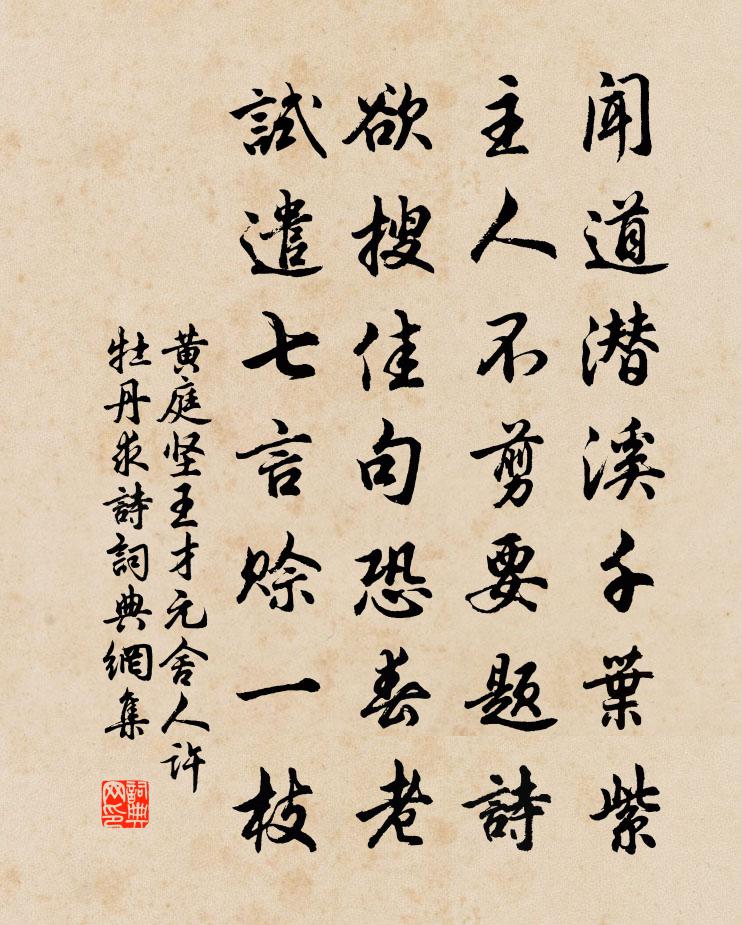 闻道潜溪千葉紫
主人不剪要题詩
欲搜佳句恐春老
試遣七言赊一枝
黄庭坚王才元舍人许
牡丹求詩詞典網集
詞典网印